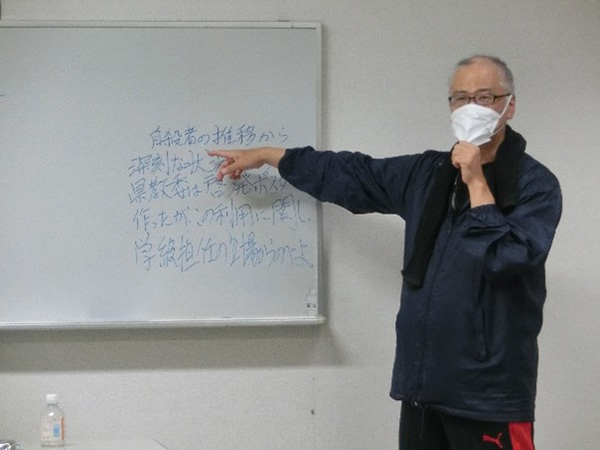 自殺者の推移から
深刻な状
県教委は啓発ポスタ
作ったが、この利用に関し、
学級担任の立場からのべよ。